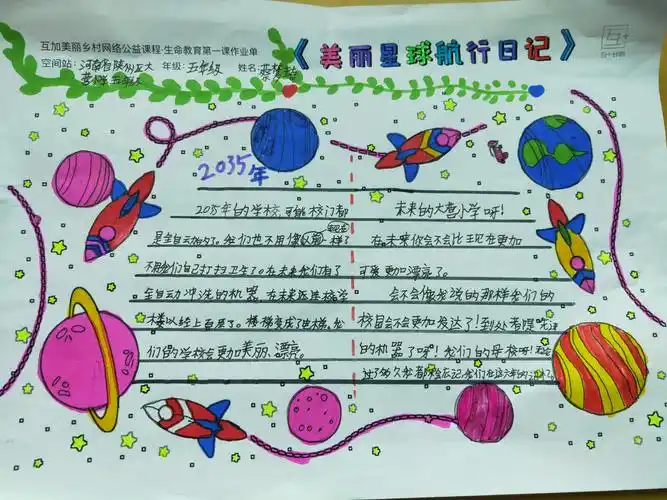 互加美丽乡村网络公益课程·生命教育第一课作业单
《美丽星球航行日记》
空间站：河南省陕州区大营小学五年级 年级：五年级 姓名：
2035年
2035年的学校,可能校门都
是全自动的了。我们也不用像以前一样了
现在
不用我们自己打扫卫生了。在未来我们有了
全自动冲洗的机器,在未来这连楼学
楼以经上百层了。楼梯变成了连梯,我
们的学校会更加美丽、漂亮。
未来的大营小学呀!
在未来你会不会比现在更加
可爱更加漂亮了。
会不会像我说的那样我们的
校园会不会更加发达了!到处者是
的机器了呀!我们的母校呀!